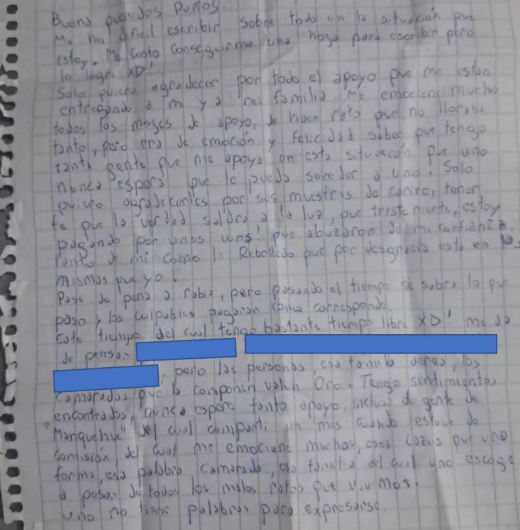 Bueno queridos
M ha dificil escribir sobre todo en la situación que
estoy. Me costo conseguirme una hoja para escribir pero
lo logre XD!
Solo quiero agradecer por todo el apoyo que me estan
entregando a mi y a mi familia. Me emocione mucho
todos los mensajes de apoyo, de hace rato que no lloraba
tanto, pero era de emoción y felicidad saber que tengo
tanta gente que me apoya en esta situación que uno
nunca espera que le pueda suceder a uno. Solo
quiero agradecerles por sus muestras de cariño, tener
fe que la verdad saldra a la luz, que tristemente, estoy
pagando por unos wns! que abuzaron de mi confianza
tanto de mi como la Rebolledo que por desgracia esta en
mismas que yo.
Pase de pena a rabia, pero pasando el tiempo se sabra lo que
paso y los culpables pagaran como corresponde
Este tiempo del cual tengo bastante tiempo libre XD! me da
de pensar
, pero las personas, esa familia los
camaradas que la componen valen Oro. Tengo sentimientos
encontrados, nunca espere tanto apoyo, incluso de gente de
"Manquehue" del cual comparti un mes cuando estuve de
comisión del cual me emocione mucho, esos lazos que uno
forma, esa palabra camarada, esa familia del cual uno escoge
a pesar de todos los malos ratos que vivimos.
uno no tiene palabras para expresarse.